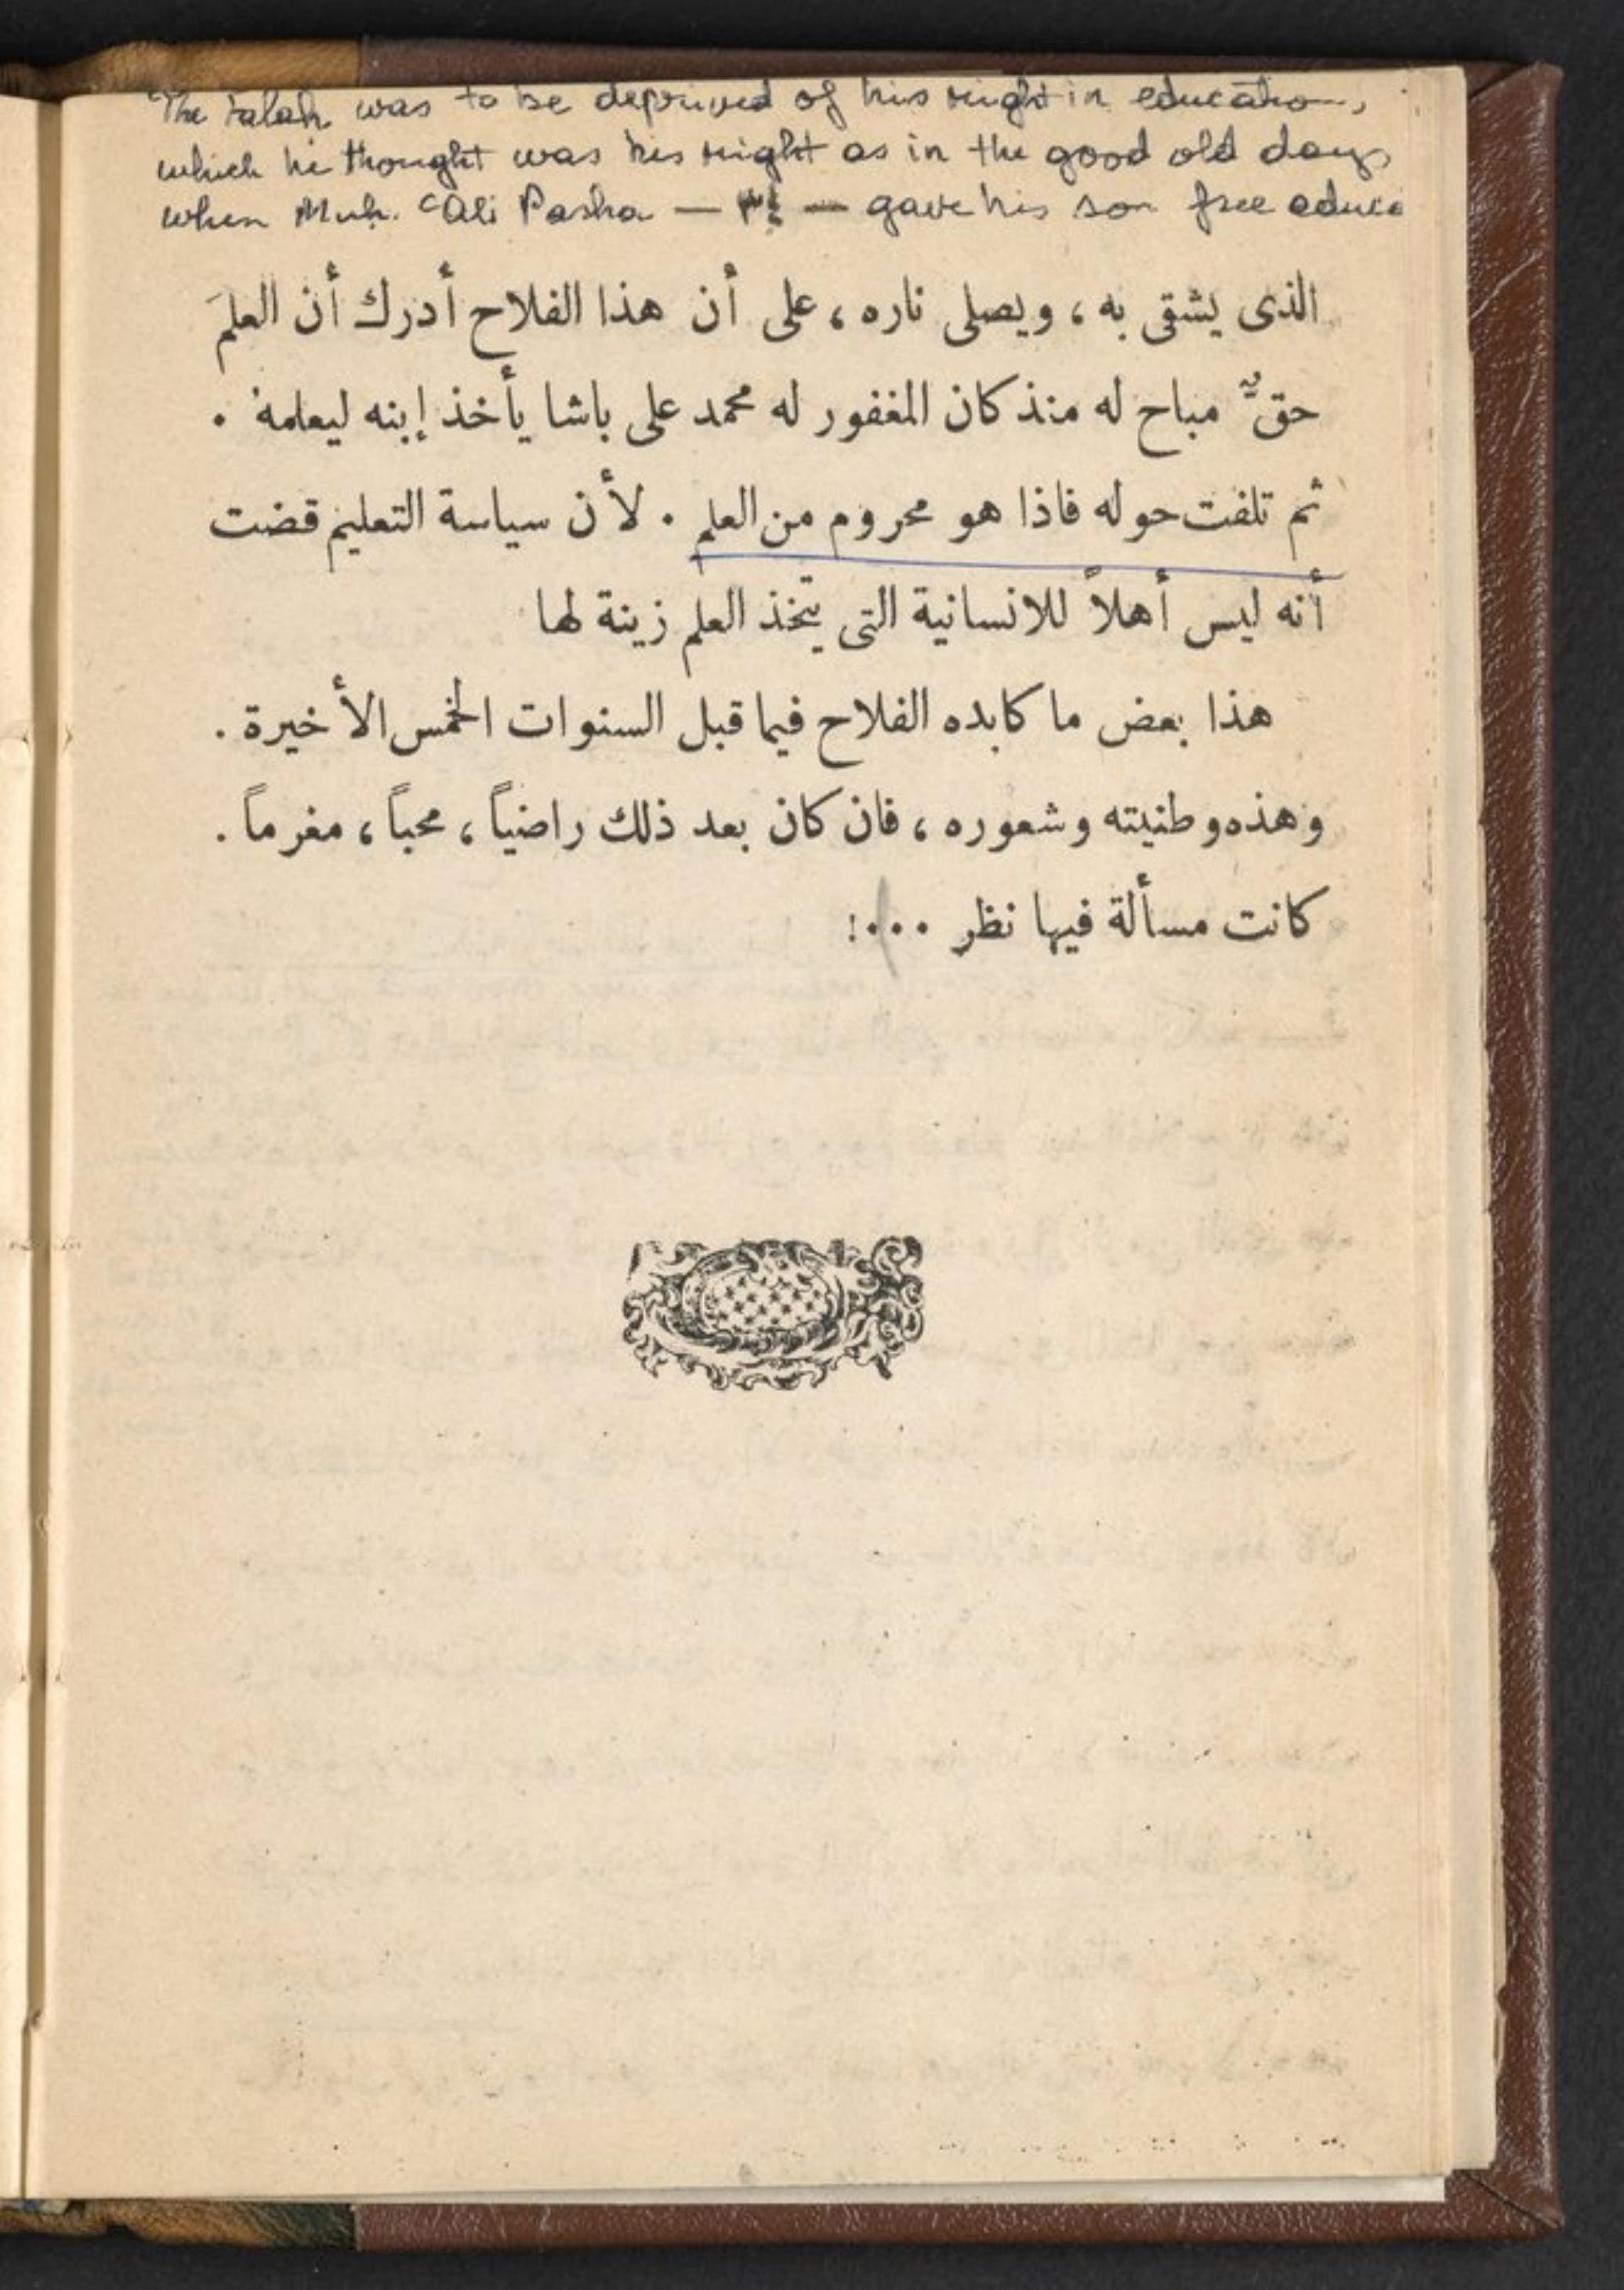 The falah was to be deprived of his right in education,
which he thought was his right as in the good old days
when Muh. ʿAli Pasha — ٣٤ — gave his son free educa
الذى يشقى به ، ويصلى ناره ، على أن هذا الفلاح أدرك أن العلمَ
حقٌّ مباح له منذ كان المغفور له محمد على باشا يأخذ إبنه ليعلمه .
ثم تلفت حوله فاذا هو محروم من العلم . لأن سياسة التعليم قضت
أنه ليس أهلاً للانسانية التى يتخذ العلم زينة لها
هذا بعض ما كابده الفلاح فيما قبل السنوات الخمس الأخيرة .
وهذه وطنيته وشعوره ، فان كان بعد ذلك راضياً ، محباً ، مغرماً .
كانت مسألة فيها نظر ...!